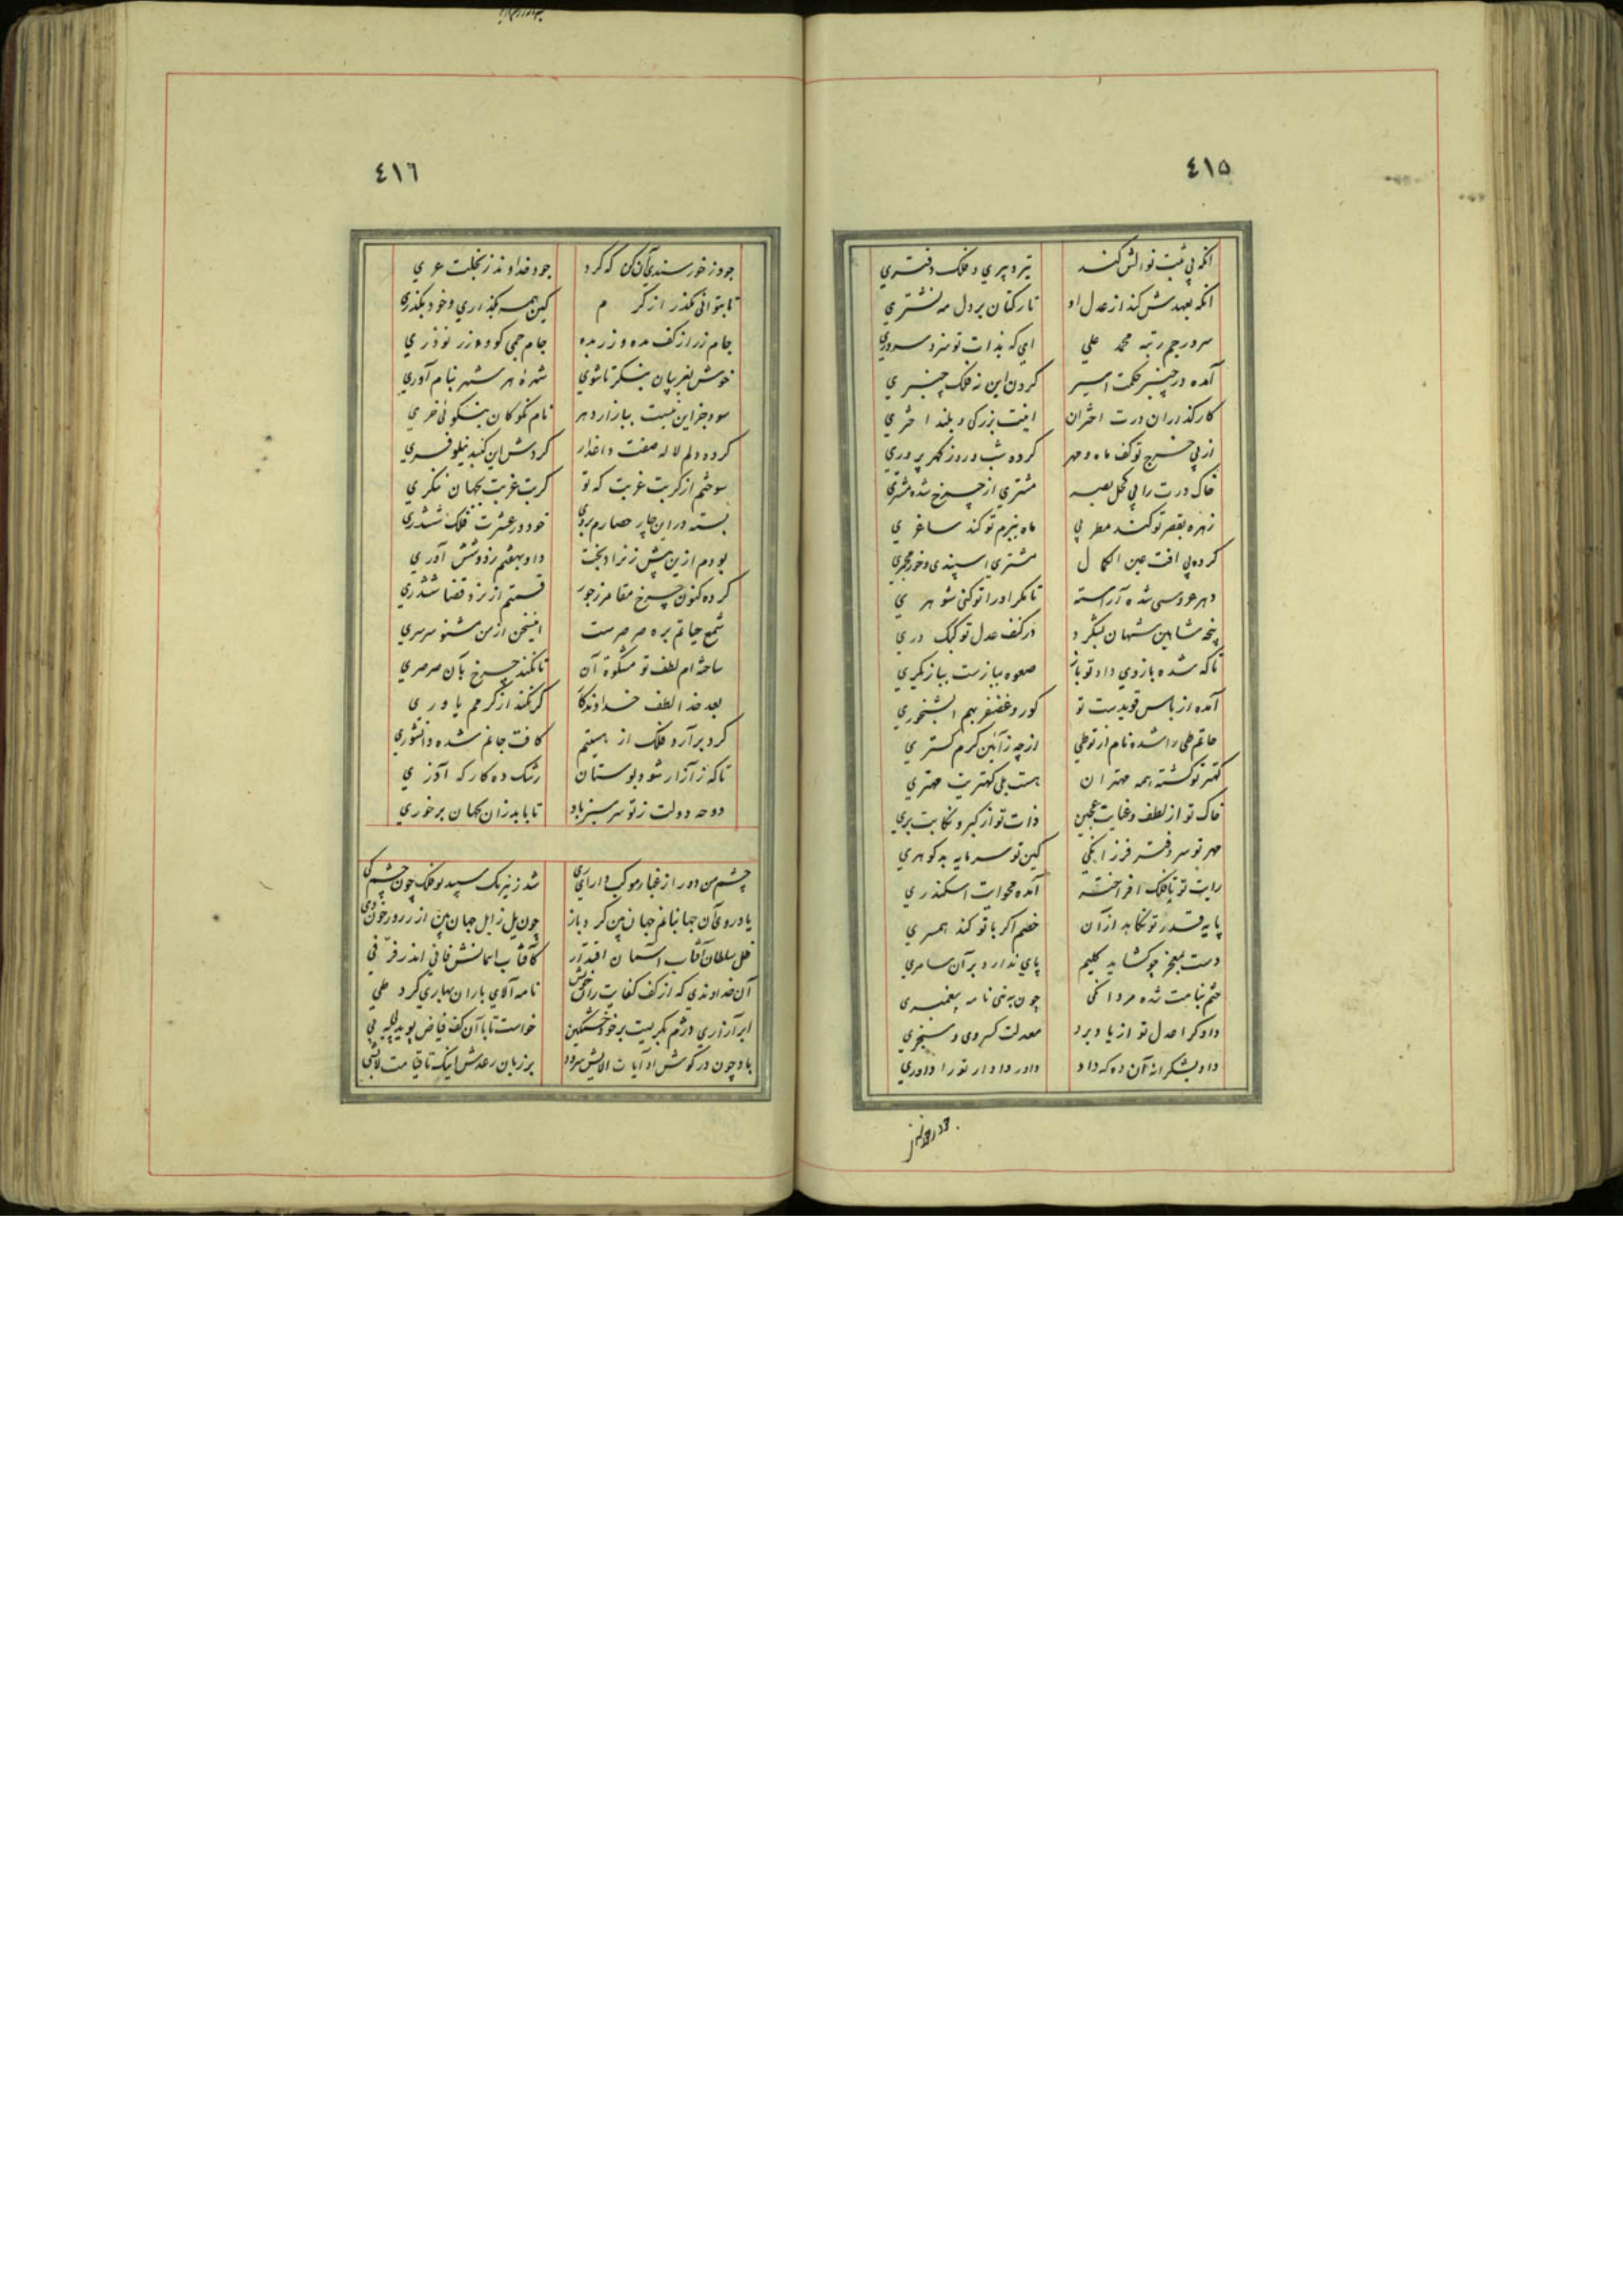 ٤١٥
انکه پی ثبت نوالش کند تیر دبیری و فلک دفتری
انکه بعهدش کند از عدل او تار کتان بر دل مه نشتری
سرور جم رتبه محمد علی ای که بذات تو سزد سروری
آمده در چنبر حکمت اسیر کردن این نه فلک چنبری
کارکذاران درت اختران اینت بزرکی و بلند اختری
از پی خرج تو کف ماه و مهر کرده شب و روز کهرپروری
خاک درت را پی کحل بصر مشتری از چرخ شده مشتری
زهره بقصر تو کند مطربی ماه ببزم تو کند ساغری
کرده پی افت عین الکمال مشتری اسپندی و خور مجمری
دهر عروسی شده آراسته تا مکر او را تو کنی شوهری
پنجه شاهین شهان بشکرد در کنف عدل تو کبک دری
تا که شده بازوی داد تو باز صعوه ببازست ببازیکری
آمده از باس قویدست تو کور و غضنفر بهم ابشخوری
حاتم طی را شده نام از تو طی از چه ز آئین کرم کستری
کهتر تو کشته همه مهتران هست بلی کهتریت مهتری
خاک تو از لطف و عنایت عجین ذات تو از کبر و نکایت بری
مهر تو سر دفتر فرزانکی کین تو سرمایه بدکوهری
رایت تو تا فلک افراخته آمده محو ایت اسکندری
پایه قدر تو نکاهد از آن خصم اکر با تو کند همسری
دست بمعجز چو کشاید کلیم پای ندارد بر آن سامری
ختم بنامت شده مردانکی چون به نبی نامه پیغمبری
دادکرا عدل تو از یاد برد معدلت کسروی و سنجری
داد بشکرانه آن ده که داد داور دادار تو را داوری
٤١٦
جود ز خورسندی آن کن که کرد جود خداوند ز بخلت عری
تا بتوانی مکذر از کرم کین همه بکذاری و خود بکذری
جام زر از کف مده و زر بده جام جمی کو و زر نوذری
خوش بغریبان بنکر تا شوی شهره هر شهر بنام آوری
سود جز این نیست ببازار دهر نام نکو کان بنکوئی خری
کرده دلم لاله صفت داغدار کردش این کنبد نیلوفری
سوختم از کربت غربت که تو کربت غربت بجهان ننکری
بسته در این چار حصارم بروی خود در عشرت فلک ششدری
بودم ازین پیش ز نراد بخت داو بهفتم زدو شش آوری
کرده کنون چرخ مقامر ز جور قسمتم از نرد قضا ششدری
شمع حیاتم بره صرصرست اینسخن از من مشنو سرسری
ساخته ام لطف تو مشکوة آن تا نکند چرخ بآن صرصری
بعد خدا لطف خداوندکا کر نکند از کرمم یاوری
کرد برآرد فلک از هستیم کافت جانم شده دانشوری
تا که ز آزار شود بوستان رشک ده کارکه آذری
دوحه دولت ز تو سرسبز باد تا بابد زان بجهان برخوری
چشم من دور از غبار موکب دارای ری شد ز نیرنک سپید بو فلک چون چشم کی
یا در روی آن جهانبانم جهان بین کرد باز چون یل زابل جهان بین از رزور خون وی
ظل سلطان آفتاب آسمان اقتدار کافتاب اسمانش فانی اندر فر فی
آن خداوندی که از کف کفایت رامحش نامه آلای باران بهاری کرد طی
ابر آزاری دژم بکریست بر خود خشمکین خواست تا با آن کف فیاض پوید پی به پی
باد چون در کوش او آیات الایش سرود بر زبان رعدش اینک تا قیامت لابشی